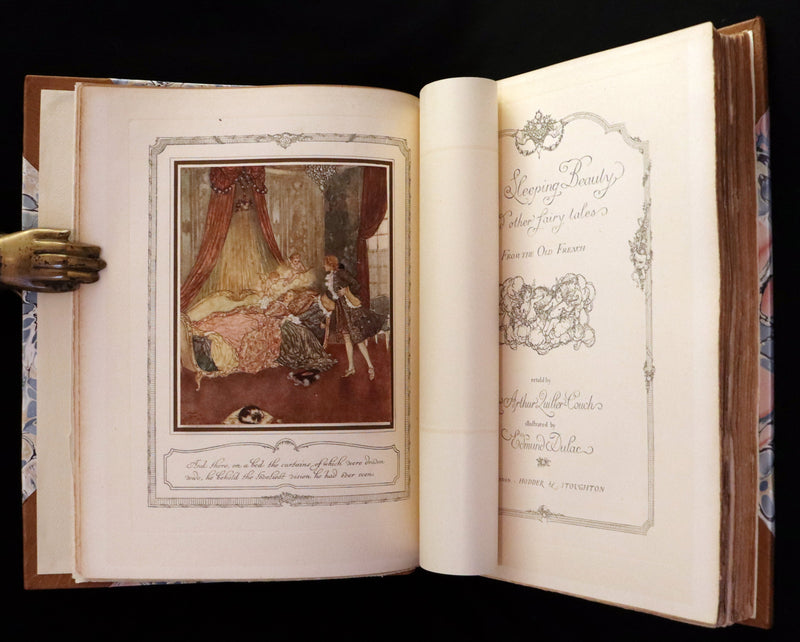 And there, on a bed the curtains of which were drawn
wide, he beheld the loveliest vision he had ever seen.
Sleeping Beauty
other fairy tales
From the Old French
retold by
Arthur Quiller-Couch
illustrated by
Edmund Dulac
Hodder & Stoughton